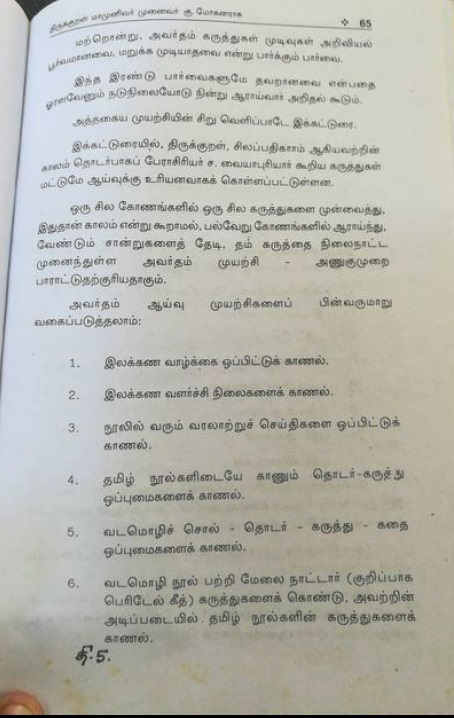 திருக்குறள் மாமுனிவர் முனைவர் கு. மோகனராசு ❖ 65
மற்றொன்று, அவர்தம் கருத்துகள் முடிவுகள் அறிவியல்
பூர்வமானவை, மறுக்க முடியாதவை என்று பார்க்கும் பார்வை.
இந்த இரண்டு பார்வைகளுமே தவறானவை என்பதை
ஓரளவேனும் நடுநிலையோடு நின்று ஆராய்வார் அறிதல் கூடும்.
அத்தகைய முயற்சியின் சிறு வெளிப்பாடே இக்கட்டுரை.
இக்கட்டுரையில், திருக்குறள், சிலப்பதிகாரம் ஆகியவற்றின்
காலம் தொடர்பாகப் பேராசிரியர் ச. வையாபுரியார் கூறிய கருத்துகள்
மட்டுமே ஆய்வுக்கு உரியனவாகக் கொள்ளப்பட்டுள்ளன.
ஒரு சில கோணங்களில் ஒரு சில கருத்துகளை முன்வைத்து,
இதுதான் காலம் என்று கூறாமல், பல்வேறு கோணங்களில் ஆராய்ந்து,
வேண்டும் சான்றுகளைத் தேடி, தம் கருத்தை நிலைநாட்ட
முனைந்துள்ள அவர்தம் முயற்சி - அணுகுமுறை
பாராட்டுதற்குரியதாகும்.
அவர்தம் ஆய்வு முயற்சிகளைப் பின்வருமாறு
வகைப்படுத்தலாம்:
1. இலக்கண வாழ்க்கை ஒப்பிட்டுக் காணல்.
2. இலக்கண வளர்ச்சி நிலைகளைக் காணல்.
3. நூலில் வரும் வரலாற்றுச் செய்திகளை ஒப்பிட்டுக்
காணல்.
4. தமிழ் நூல்களிடையே காணும் தொடர்-கருத்து
ஒப்புமைகளைக் காணல்.
5. வடமொழிச் சொல் - தொடர் - கருத்து - கதை
ஒப்புமைகளைக் காணல்.
6. வடமொழி நூல் பற்றி மேலை நாட்டார் (குறிப்பாக
பெரிடேல் கீத்) கருத்துகளைக் கொண்டு, அவற்றின்
அடிப்படையில் தமிழ் நூல்களின் கருத்துகளைக்
காணல்.
தி-5.